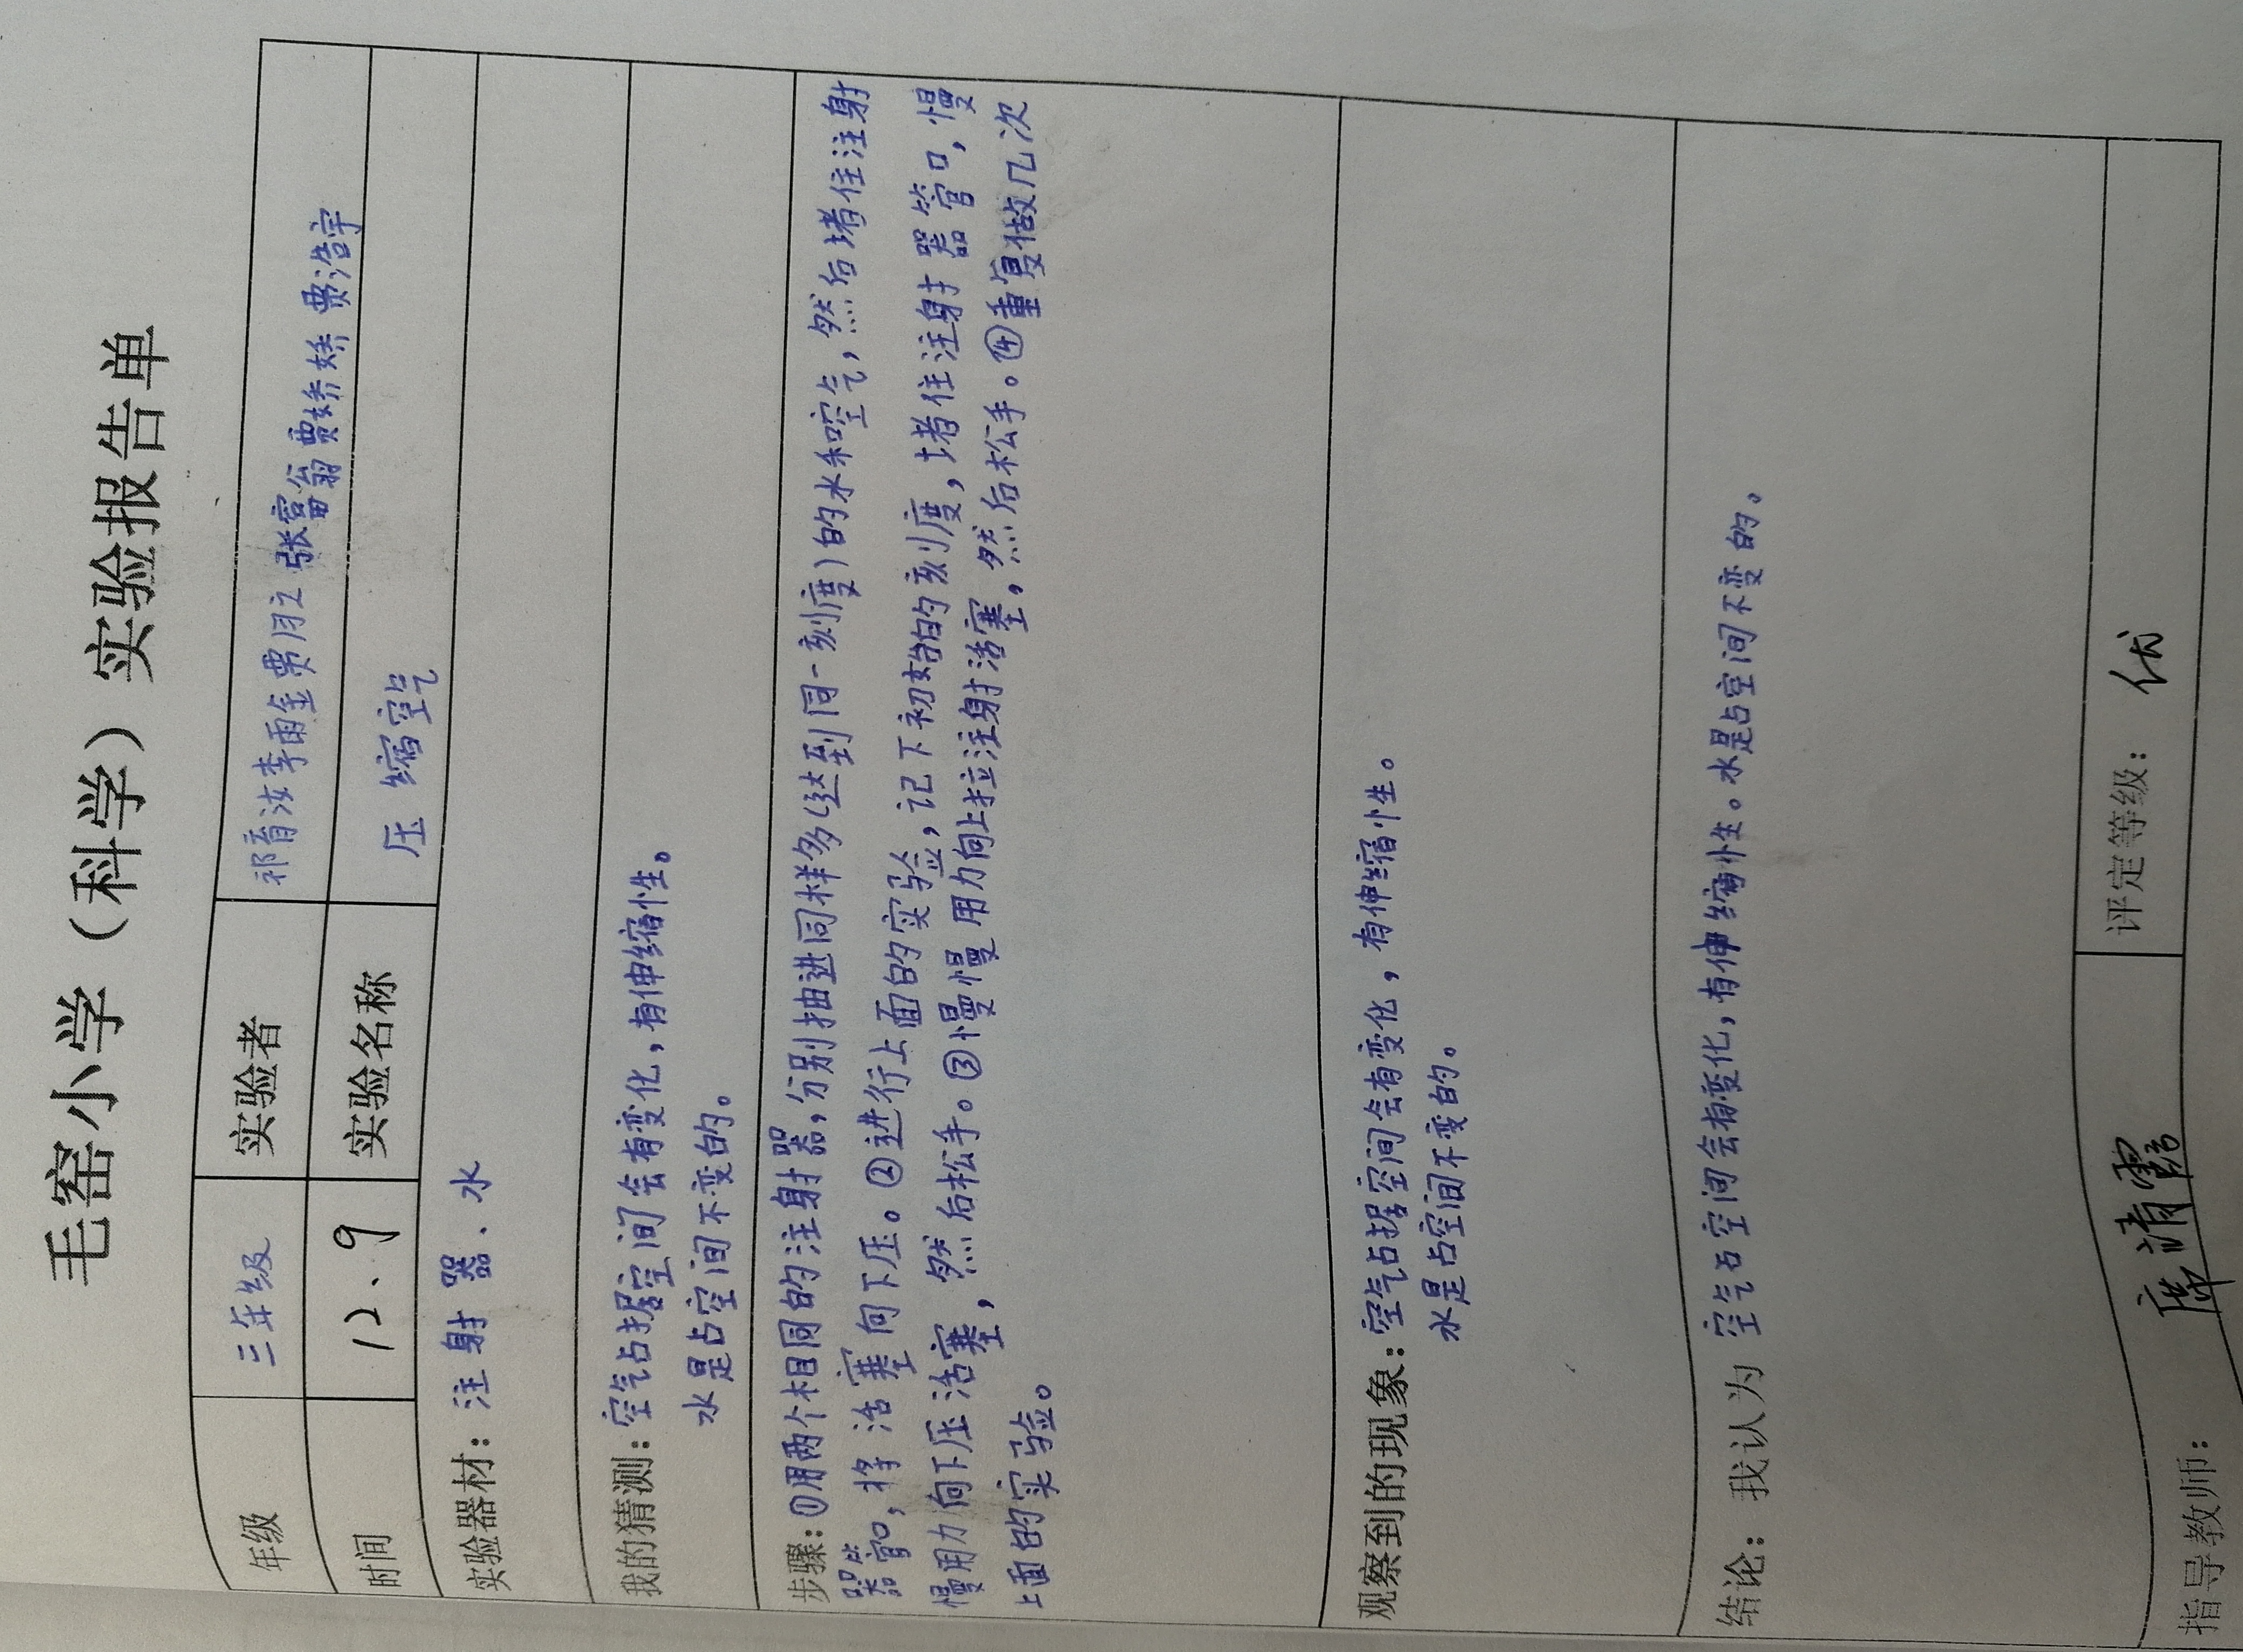 毛窑小学（科学）实验报告单
年级 三年级 实验者 祁育汝 李雨金 贾月立 张富翁 贾娇娇 贾浩宇
时间 12、9 实验名称 压缩空气
实验器材：注射器、水
我的猜测：空气占据空间会有变化，有伸缩性。
水是占空间不变的。
步骤：①用两个相同的注射器，分别抽进同样多（达到同一刻度）的水和空气，然后堵住注射
器管口，将活塞向下压。②进行上面的实验，记下初始的刻度，堵住注射器管口，慢
慢用力向下压活塞，然后松手。③慢慢用力向上拉注射活塞，然后松手。④重复做几次
上面的实验。
观察到的现象：空气占据空间会有变化，有伸缩性。
水是占空间不变的。
结论：我认为 空气占空间会有变化，有伸缩性。水是占空间不变的。
指导教师： 清霞 评定等级：优